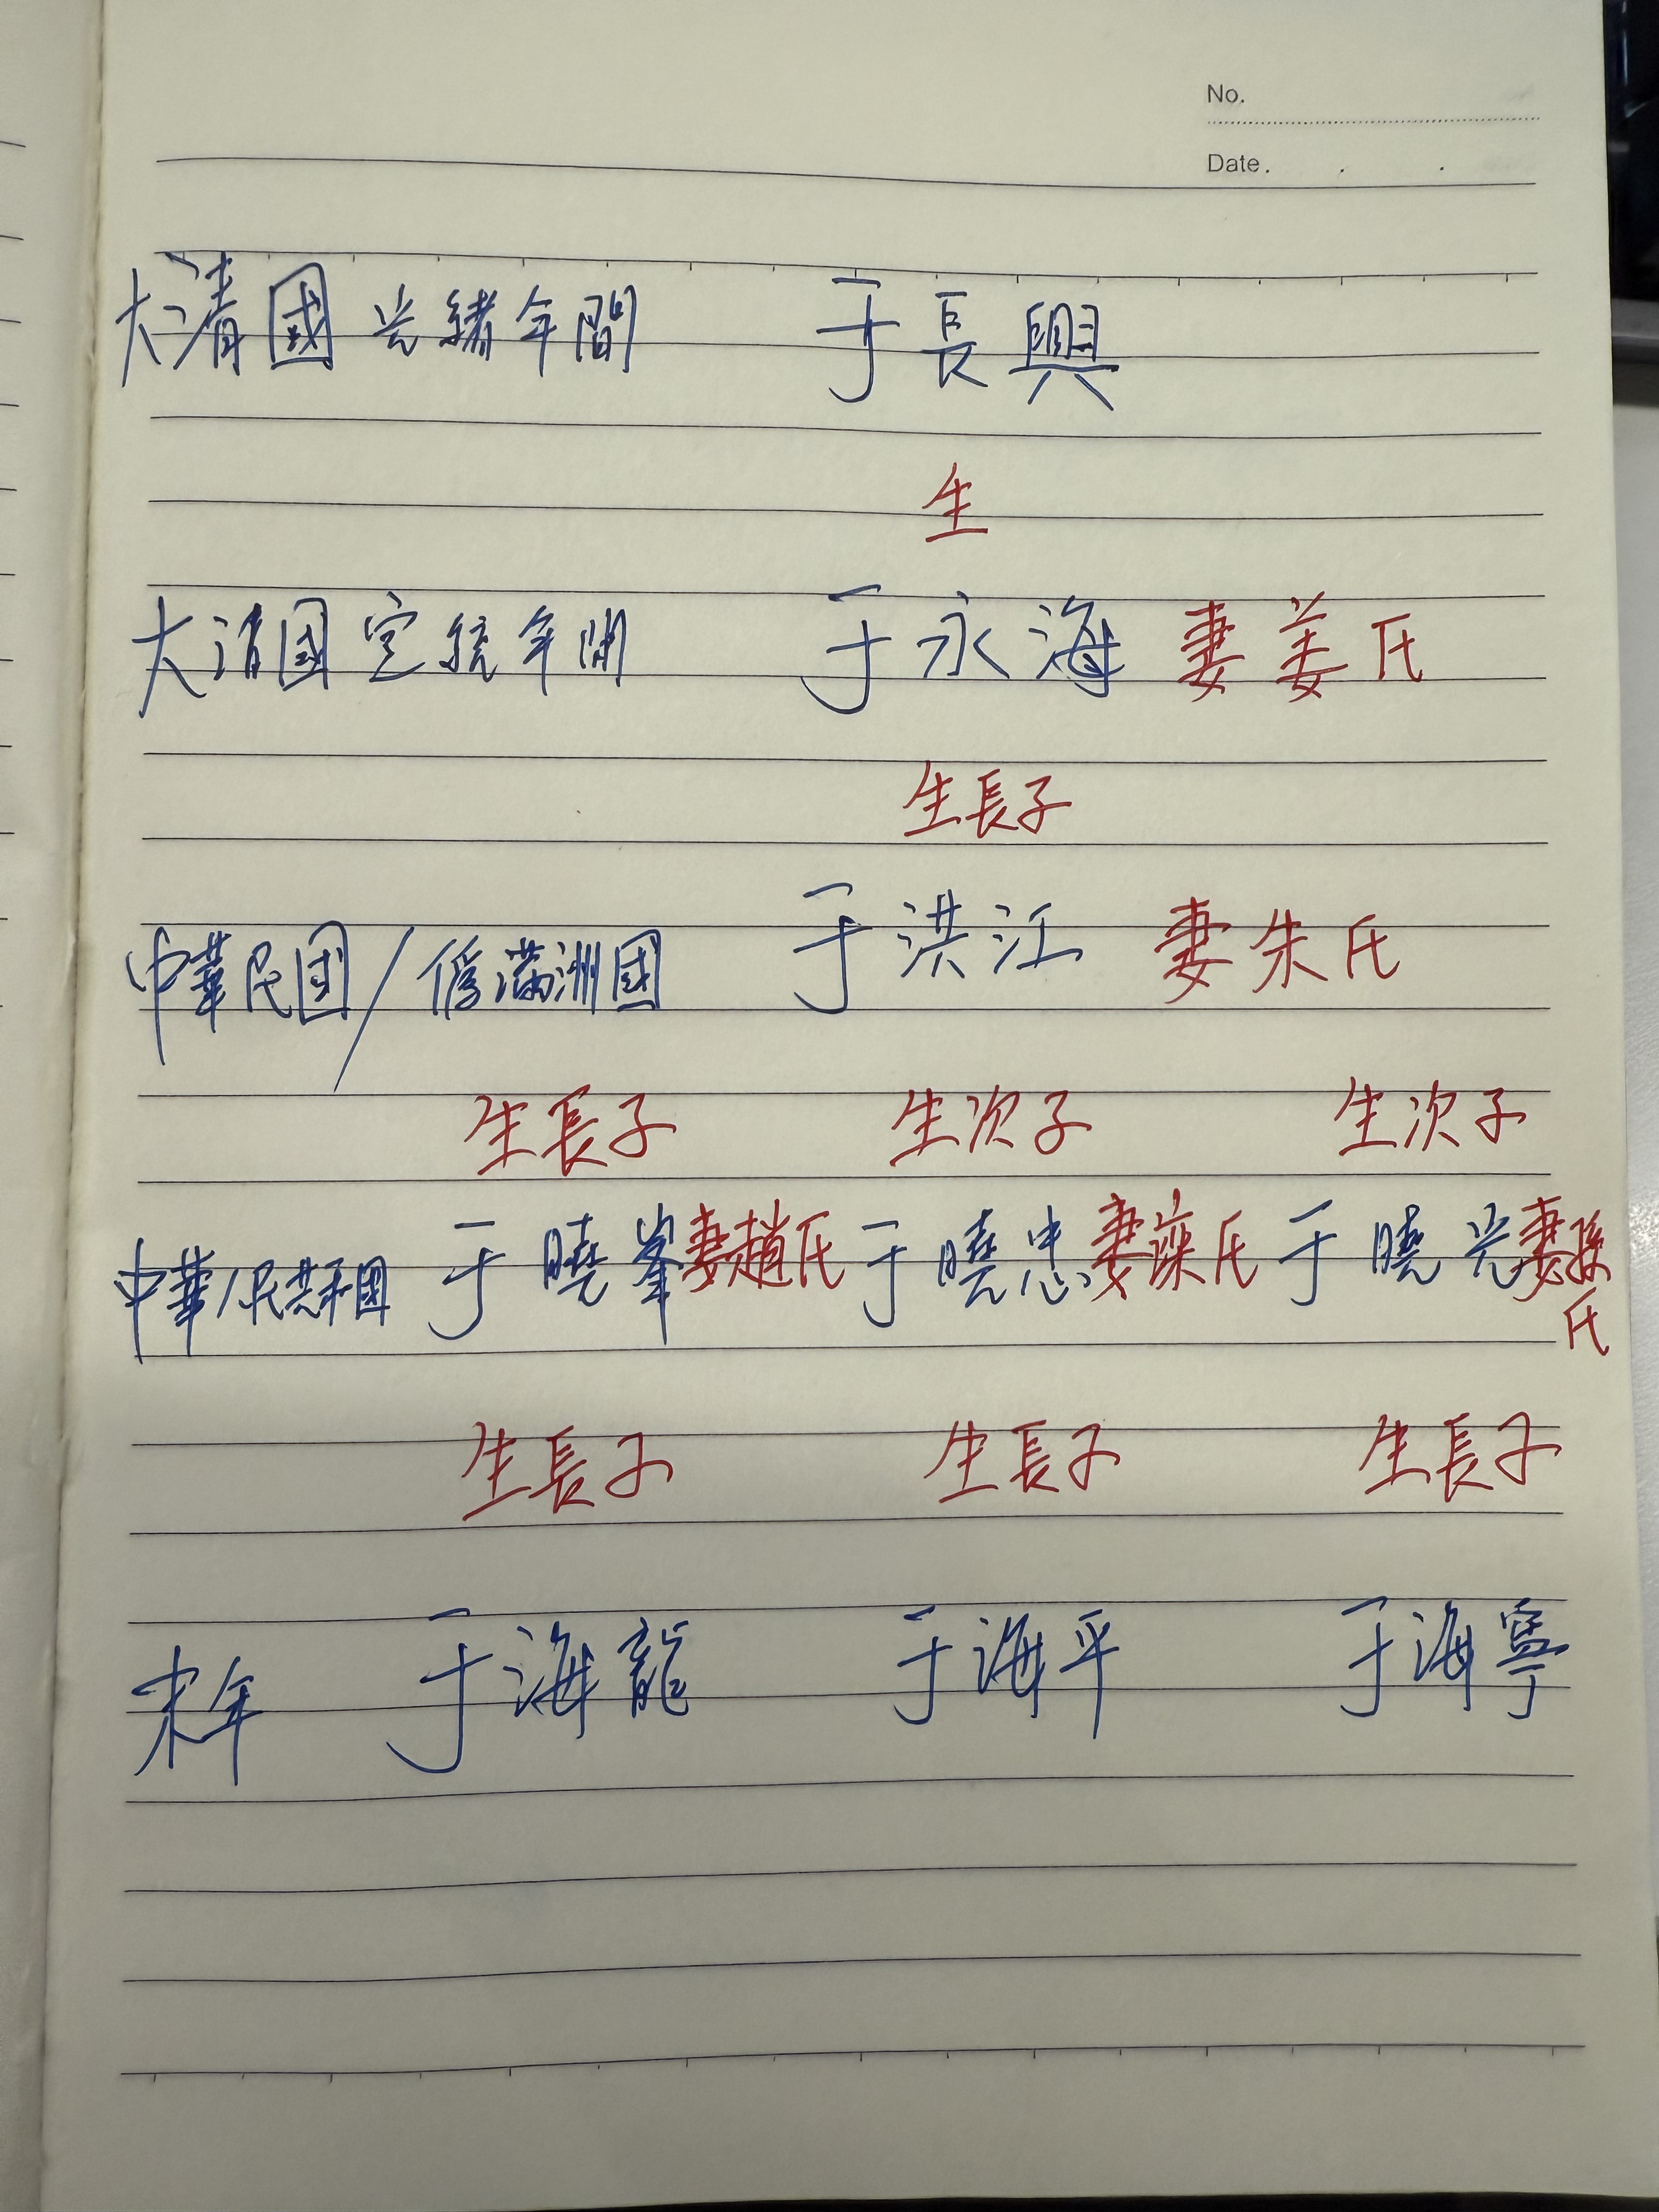 No.
Date.
大清國光緒年間 于長興
生
大清國宣統年間 于永海 妻姜氏
生長子
中華民国/偽滿洲國 于洪江 妻朱氏
生長子 生次子 生次子
中華人民共和國 于曉峯 妻趙氏 于曉忠 妻氏 于曉光 妻孫氏
生長子 生長子 生長子
末年 于海龍 于海平 于海寧